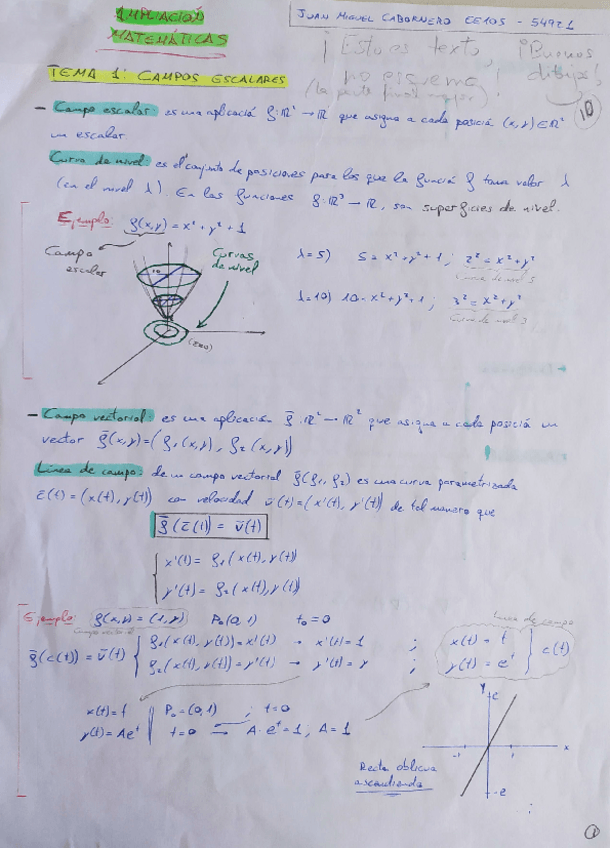 AMPLIACIÓN
MATEMÁTICAS
JUAN MIGUEL CABORNERO EE105 - 54921
¡Esto es texto, ¡Buenos
no esquema! dibujos!
10
TEMA 1: CAMPOS ESCALARES
- Campo escalar: es una aplicación f: ℝ² → ℝ que asigna a cada posición (x,y) ∈ ℝ²
un escalar
Curva de nivel: es el conjunto de posiciones para los que la función f toma valor λ
(en el nivel λ). En las funciones f: ℝ³ → ℝ, son superficies de nivel.
Ejemplo: f(x,y) = x² + y² + 1
Campo
escalar
Curvas
de nivel
10
λ=5) 5 = x² + y² + 1 ; 2² = x² + y²
Curva de nivel 5
λ=10) 10 = x² + y² + 1 ; 3² = x² + y²
Curva de nivel
- Campo vectorial: es una aplicación f̄: ℝ² → ℝ² que asigna a cada posición un
vector f̄(x,y) = (f₁(x,y), f₂(x,y))
Línea de campo: de un campo vectorial f̄(f₁, f₂) es una curva parametrizada
c̄(t) = (x(t), y(t)) con velocidad v̄(t) = (x'(t), y'(t)) de tal manera que
f̄(c̄(t)) = v̄(t)
x'(t) = f₁(x(t), y(t))
y'(t) = f₂(x(t), y(t))
Ejemplo: f(x,y) = (1,y) P₀(0,1) t₀=0
Campo vectorial
Línea de campo
f̄(c(t)) = v̄(t) { f₁(x(t), y(t)) = x'(t) → x'(t) = 1 ; x(t) = t
f₂(x(t), y(t)) = y'(t) → y'(t) = y ; y(t) = eᵗ } c(t)
x(t) = t P₀ = (0,1) ; t=0
y(t) = Aeᵗ t=0 → A·eᵗ = 1, A=1
y
e
-1 1 x
-e
Recta oblicua
ascendiendo
1